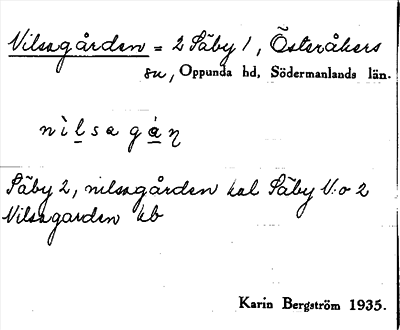 Nilsagården = 2 Säby 1, Österåkers
sn, Oppunda hd, Södermanlands län.
nìlsagáṇ
Säby 2, nilsagården kal Säby N:o 2
Nilsagarden kb
Karin Bergström 1935.